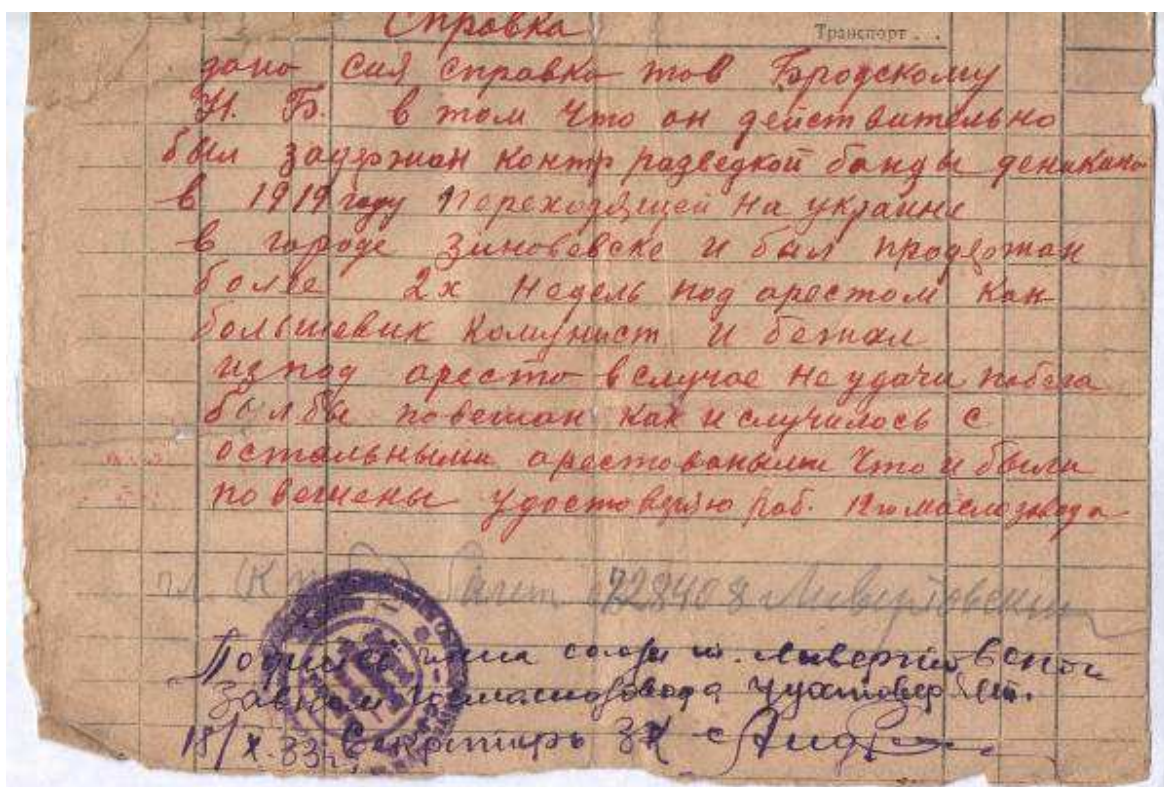 Справка
Транспорт . .
дано сия справка тов Городскому
Н. Б. в том что он действительно
был задержан контр разведкой банды деникина
в 1919 году переходящей на украине
в городе Зиновевске и был продержан
более 2х недель под арестом как
большевик комунист и бежал
из под аресто в случае не удачи побега
был бы повешан как и случилось с
остальными арестоваными что и были
повешены удостоверяю раб. маслозавода
билет 0728408 Ливертовский
Подпись члена т. Ливертовской
Завком Госмаслозавода
18/X-33г. Секретарь ЗК